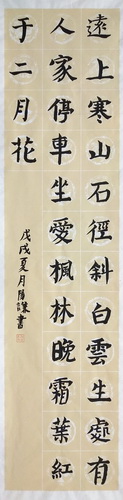 遠上寒山石徑斜白雲生處有
人家停車坐愛楓林晚霜葉紅
于二月花
戊戌夏月陽謀書